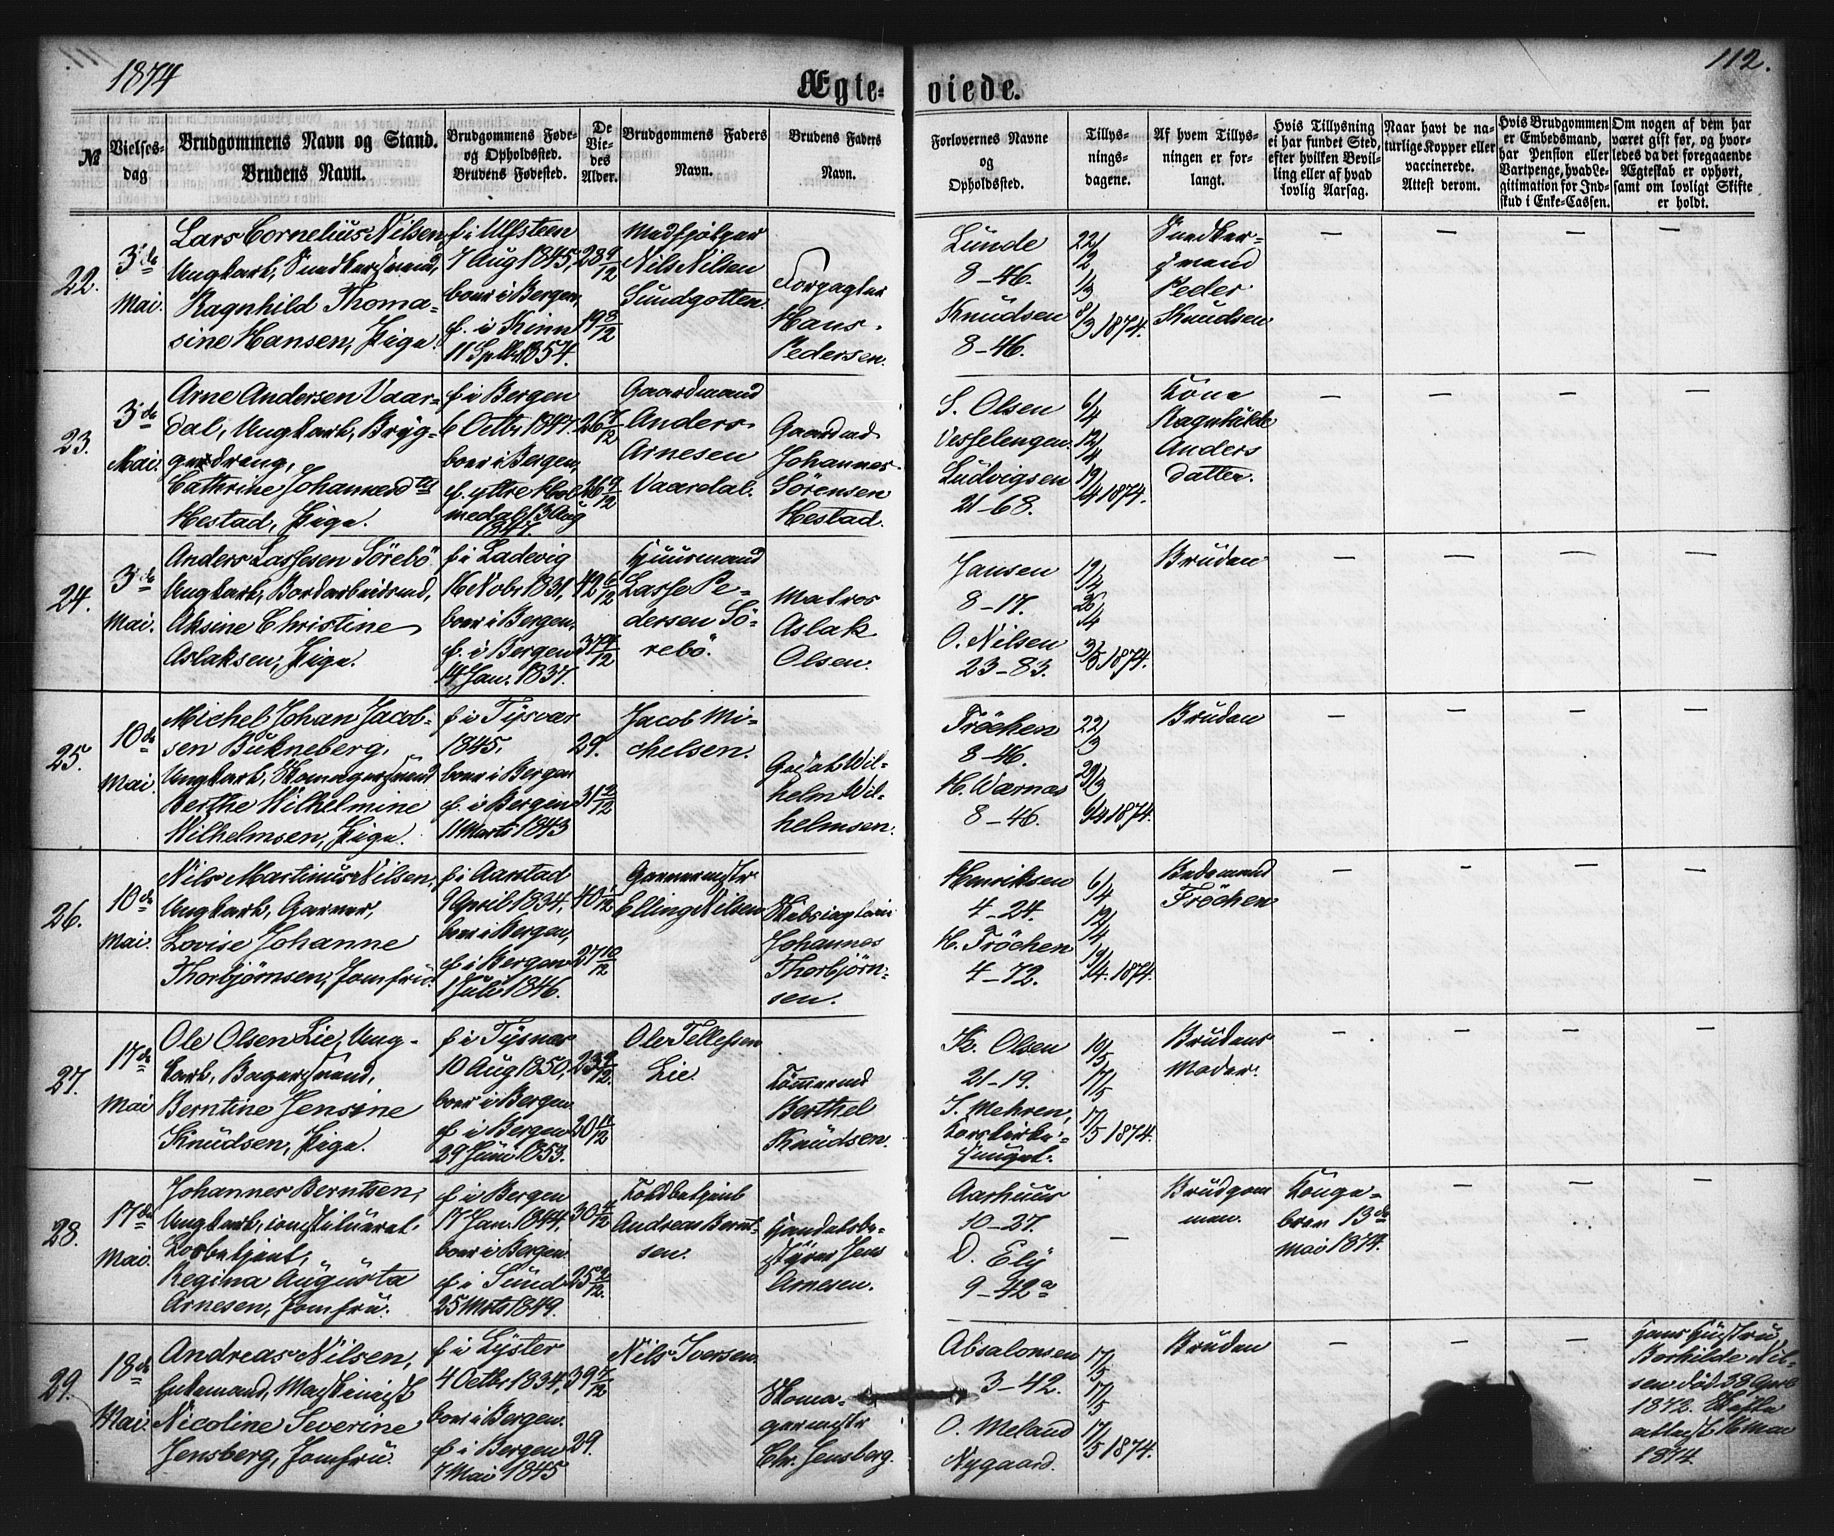 1874
112.
Ægte-
viede.
№
Vielses-
dag
Brudgommens Navn og Stand.
Brudens Navn.
Brudgommens Føde-
og Opholdssted.
Brudens Fødested.
De
Vie-
des
Alder.
Brudgommens Faders
Navn.
Brudens Faders
Navn.
Forlovernes Navne
og
Opholdssted.
Tillys-
nings-
dagene.
Af hvem Tillys-
ningen er for-
langt.
Hvis Tillysning
ei har fundet Sted,
efter hvilken Bevil-
ling eller af hvad
lovlig Aarsag.
Naar havt de na-
turlige Kopper eller
vaccinerede.
Attest derom.
Hvis Brudgommen
er Embedsmand,
har Pension eller
Vartpenge, hvad Le-
gitimation for Ind-
skud i Enke-Cassen.
Om nogen af dem har
været gift før, og hvor-
ledes da det foregaaende
Ægteskab er ophørt,
samt om lovligt Skifte
er holdt.
22.
3de
Mai.
Lars Cornelius Nilsen,
Ungkarl, Snedkersvend,
Ragnhild Thoma-
sine Hansen, Pige.
f. i Ulfsteen
7 Aug 1845,
boer i Bergen,
f. i Kinn
11 Septbr 1854.
28 9/12
19 8/12
Nils Nilsen
Sundgotten.
Forpagter
Hans
Pedersen.
Lunde
8-46.
Knudsen
8-46.
22/2
1/3
8/3 1874.
Snedker-
svend
Peder
Knudsen
23.
3de
Mai.
Arne Andersen Vaar-
dal, Ungkarl, Bryg-
gerdreng,
Cathrine Johannesdtr
Hestad, Pige.
f. i Bergen
6 Octbr 1847.
boer i Bergen,
f. yttre Hol-
medal 13 Aug
1847.
26 7/12
26 9/12
Gaardmand
Anders
Arnesen
Vaardal.
Gaardmd
Johannes
Sörensen
Hestad.
S. Olsen
Vesselengen.
Ludvigsen
21-68.
6/4
12/4
19/4 1874.
Kone
Ragnhilde
Anders
datter.
24.
3de
Mai.
Anders Lassesen Sörebö
Ungkarl, Bordarbeidsmd,
Aksine Christine
Aslaksen, Pige.
f. i Ladevig
16 Novbr 1831,
boer i Bergen,
f. i Bergen
14 Jan. 1837.
42 6/12
37 4/12
Huusmand
Lasse Pe-
dersen Sö-
rebö.
Matros
Aslak
Olsen.
Jansen
8-17.
O. Nilsen
23-83.
19/4
26/4
3/5 1874.
Bruden
25.
10de
Mai.
Michel Johan Jacob-
sen Bukneberg,
Ungkarl, Skomagersvend
Berthe Wilhelmine
Wilhelmsen, Pige.
f. i Tysvær
1845,
boer i Bergen
f. i Bergen
11 Marts 1843
29.
31 2/12
Jacob Mi-
chelsen.
Wil-
helm Wil-
helmsen.
Tröchen
8-46.
H. Wærnøs
8-46.
22/3
29/3
6/4 1874.
Bruden
26.
10de
Mai.
Nils Martinus Nilsen,
Ungkarl, Garver,
Lovise Johanne
Thorbjørnsen, Jomfru.
f. i Aarstad
9 April 1834,
boer i Bergen,
f. i Bergen
1 Juli 1846.
40 1/12
27 10/12
Garvermester
Elling Nilsen
Skibscaptain
Johannes
Thorbjörn-
sen.
Henriksen
4-24.
H. Tröchen
4-72.
6/4
12/4
19/4. 1874.
Bedemand
Tröchen
27.
17de
Mai
Ole Olsen Lie, Ung-
karl, Bagersvend,
Berntine Jensine
Knudsen, Pige.
f. i Tysnæs
10 Aug 1850,
boer i Bergen
f. i Bergen
29 Juni 1853.
23 9/12
20 11/12
Ole Tellefsen
Lie.
Tömmermd
Berthel
Knudsen.
K. Olsen
21-19.
S. Mehren,
Korskirke-
smuget.
10/5
17/5
17/5 1874.
Brudens
Moder.
28.
17de
Mai.
Johannes Berntsen,
Ungkarl, constitueret
Losbetjent,
Regina Augusta
Arnesen, Jomfru.
f. i Bergen
17 Jan. 1844,
boer i Bergen
f. i Sund
25 Mts 1849.
30 4/12
25 2/12.
Toldbetjent
Andreas Bernt-
sen.
Handelsbe-
styrer Jens
Arnesen.
Aarhuus
10-27.
D. Ely
9-42a
Brudgom
men.
Konge-
brev 13de
Mai 1874.
29.
18de
Mai.
Andreas Nilsen,
Enkemand, Maskinist
Nicoline Severine
Jensberg, Jomfru.
f. i Lyster
4 Octbr 1834,
boer i Bergen.
f. i Bergen
7 Mai 1845
39 7/12
29.
Nils Iversen
Skoma-
germester
Chr. Jensberg.
Absalonsen
3-42.
O. Meland
Nygaard.
17/5
17/5
17/5 1874.
Bruden
Hans Hustru
Borhilde Nil-
sen død 29 April
1872. Skifte
attest 16 Mai
1874